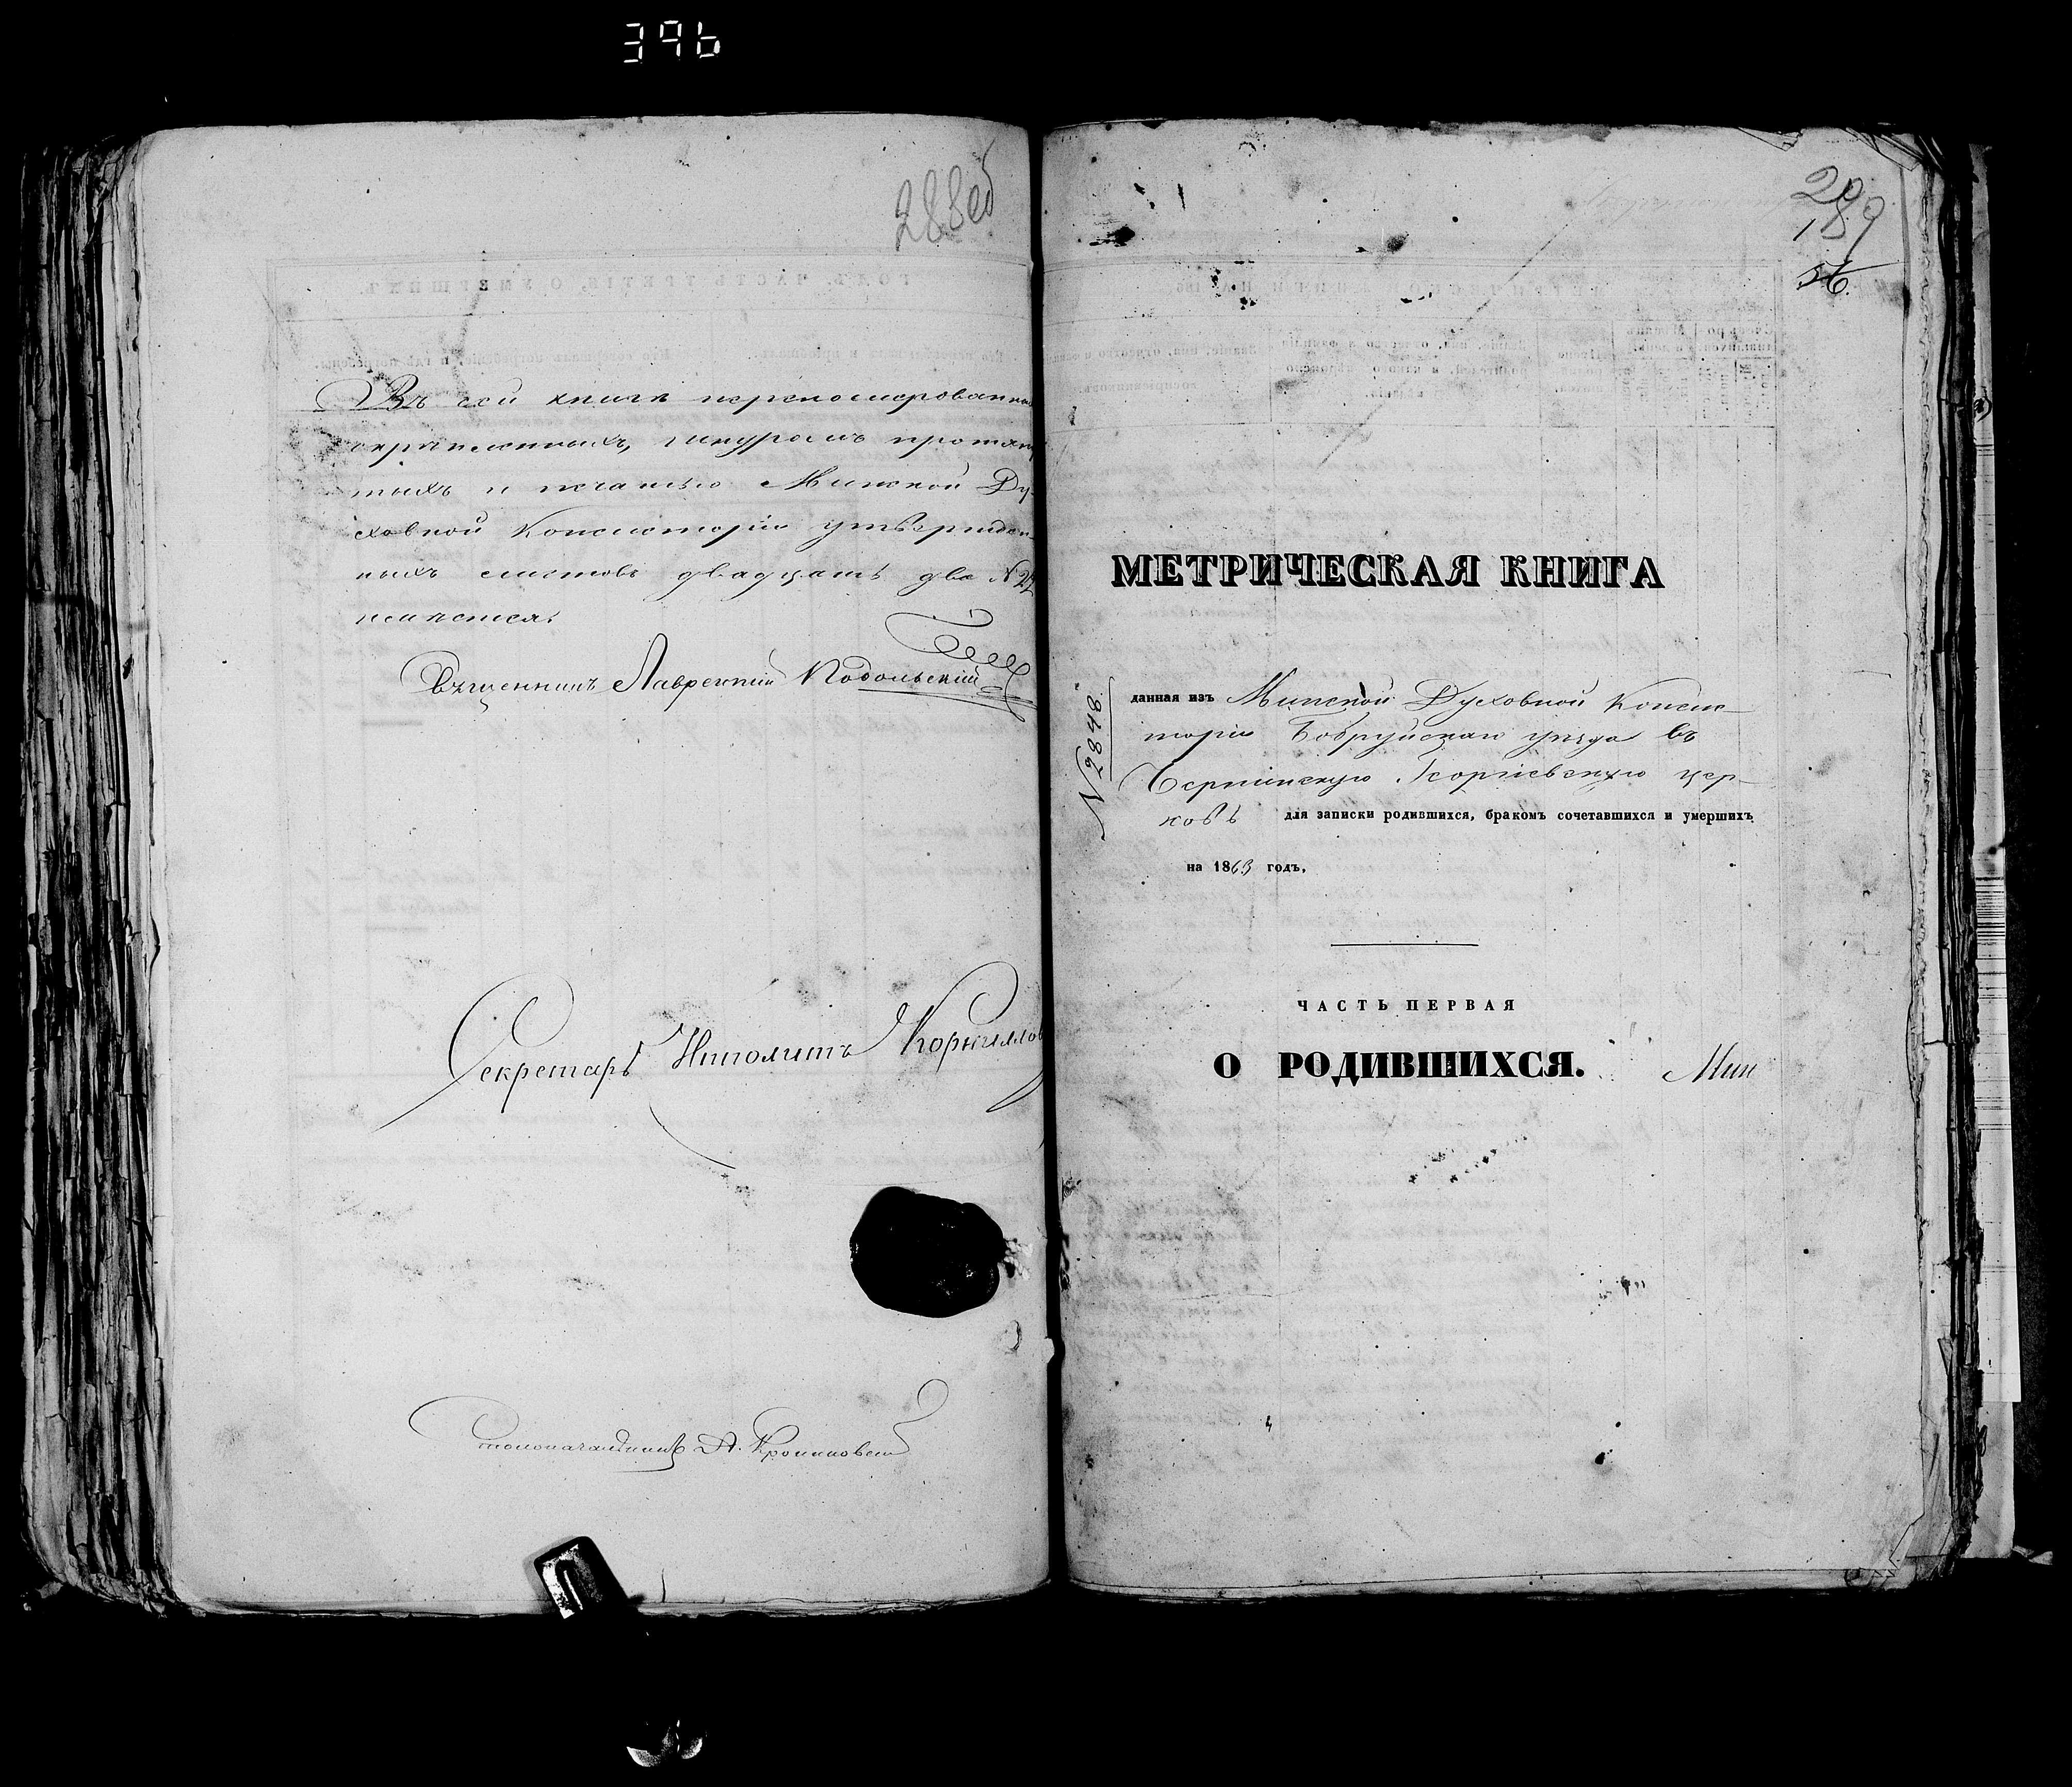 396
288об
Въ сей книгѣ перономерованныхъ
скрѣпленныхъ, шнуромъ протяну
тыхъ и печатью Минской Ду-
ховной Консисторіи утвержден
ныхъ листовъ двадцать два №22
имѣется.
Священникъ Лаврентій Подольскій
Секретарь Ипполитъ Корниллов
Столоначальникъ А.
289
56.
МЕТРИЧЕСКАЯ КНИГА
№ 2848.
данная изъ Минской Духовной Консис-
торіи Бобруйскаго уѣзда въ
Георгіевскую цер-
ковь для записки родившихся, бракомъ сочетавшихся и умершихъ
на 1863 годъ.
ЧАСТЬ ПЕРВАЯ
О РОДИВШИХСЯ.
Мин